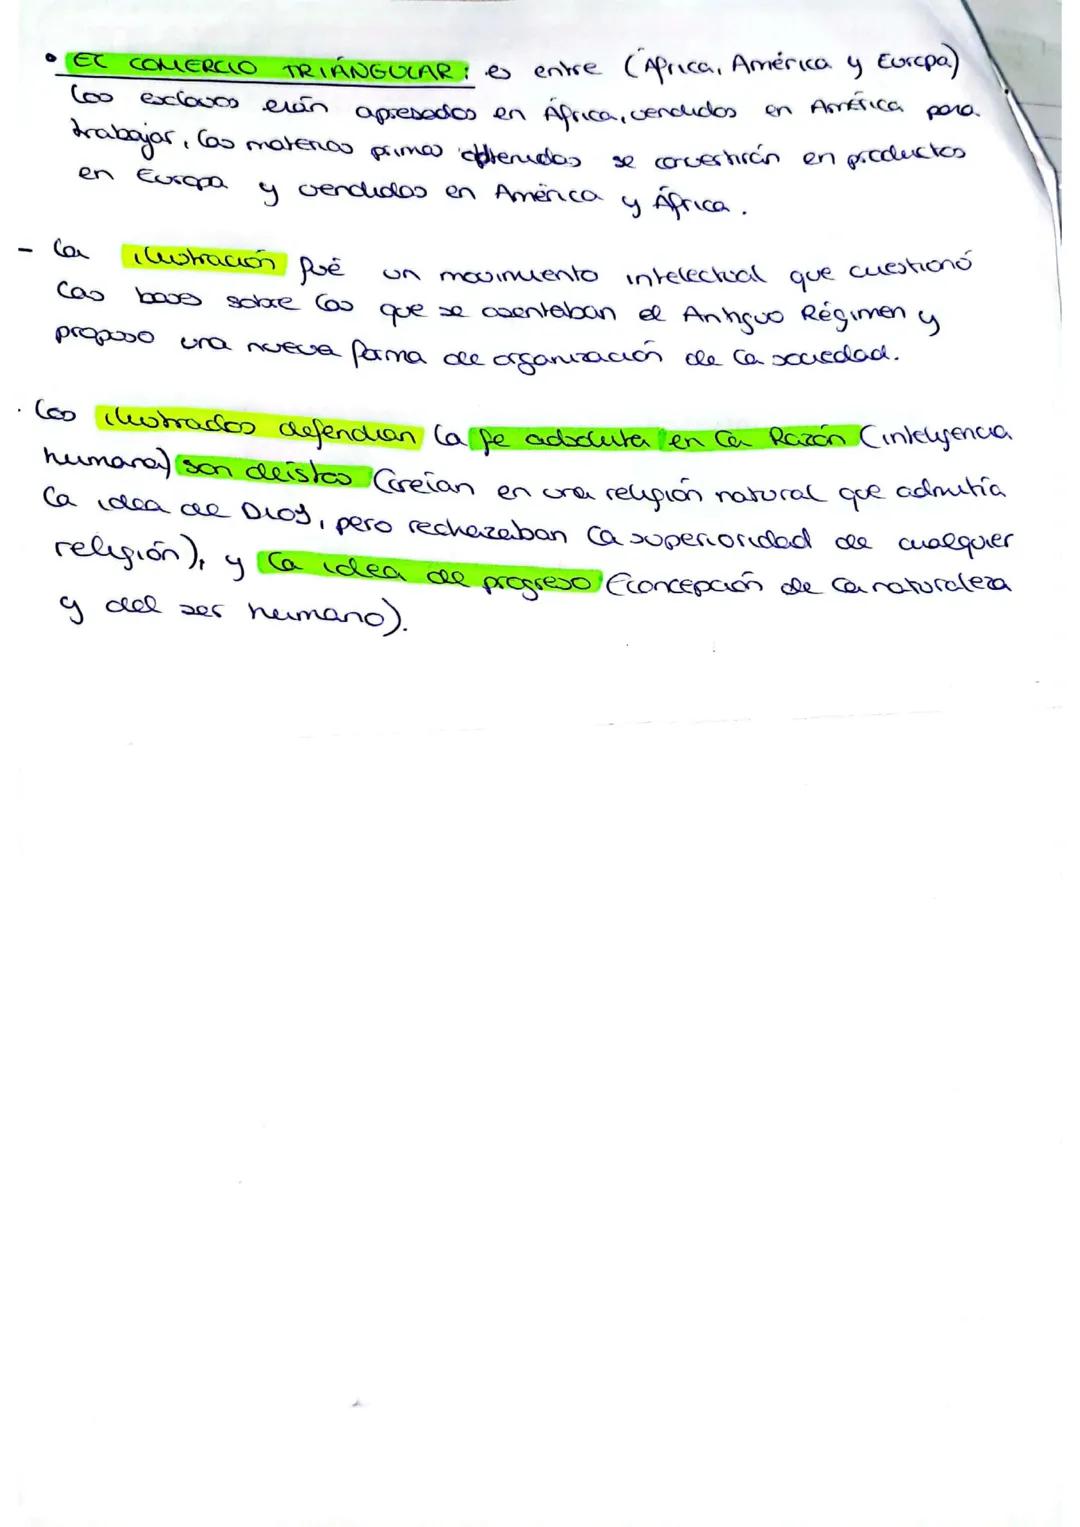 • EL COMERCIO TRIÁNGULAR: es entre (África, América y Europa)
los esclavos erán apresados en África, vendidos en América para
trabajar, las materias primas obtenidas se convertirán en productos
en Europa y vendidos en América y África.
- La ilustración fué un movimiento intelectual que cuestionó
las bases sobre las que se asentaban el Antiguo Régimen y
propuso una nueva forma de organización de la sociedad.
· Los ilustrados defendian la fe absoluta en la Razón (inteligencia
humana) son deístas (creían en una religión natural que admitía
la idea de Dios, pero rechazaban la superioridad de cualquier
religión), y la idea de progreso (concepción de la naturaleza
y del ser humano).